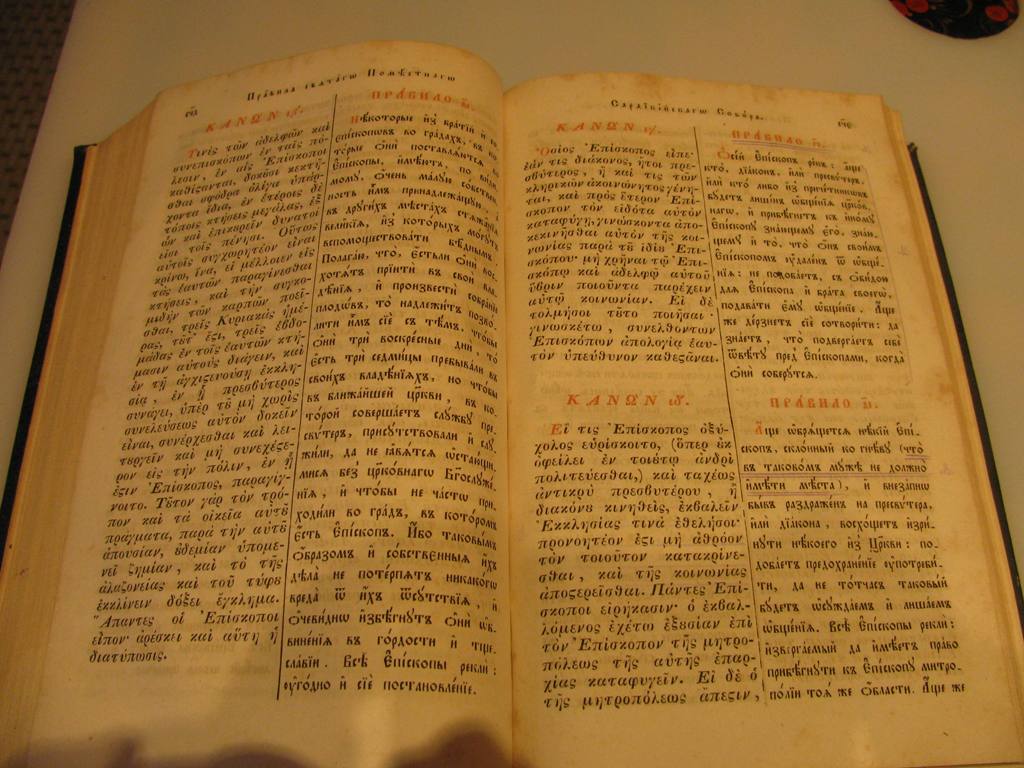 Правила свѧтагѡ Помѣстнагѡ
ΚΑΝΩΝ
Τινὲς τῶν ἀδελφῶν καὶ
συνεπισκόπων ἐν ταῖς πό-
λεσιν, ἐν αἷς Ἐπίσκοποι
καθίζανται, δοκοῦσι κεκτῆ-
σθαι σφόδρα ὀλίγα ὑπάρ-
χοντα ἴδια, ἐν ἑτέροις δὲ
τόποις κτήσεις μεγάλας, ἐξ
ὧν καὶ ἐπικουρεῖν δυνατοί
εἰσι τοῖς πένησι. Οὕτως
αὐτοῖς συγχωρητέον εἶναι
κρίνω, ἵνα, εἰ μέλλοιεν εἰς
τὰς ἑαυτῶν παραγίνεσθαι
κτήσεις, καὶ τὴν συγκο-
μιδὴν τῶν καρπῶν ποιεῖ-
σθαι, τρεῖς Κυριακὰς ἡμέ-
ρας, τοῦτ' ἔστι, τρεῖς ἑβδο-
μάδας ἐν τοῖς ἑαυτῶν κτή-
μασιν αὐτοὺς διάγειν, καὶ
ἐν τῇ ἀγχιστευούσῃ ἐκκλη-
σίᾳ, ἐν ᾗ πρεσβύτερος
συνάγει, ὑπὲρ τοῦ μὴ χωρὶς
συνελεύσεως αὐτὸν δοκεῖν
εἶναι, συνέρχεσθαι καὶ λει-
τουργεῖν καὶ μὴ συνεχέστε-
ρον εἰς τὴν πόλιν, ἐν ᾗ
ἐστὶν Ἐπίσκοπος, παραγίγ-
νοιτο. Τοῦτον γὰρ τὸν τρό-
πον καὶ τὰ οἰκεῖα αὐτοῦ
πράγματα, παρὰ τὴν αὐτοῦ
ἀπουσίαν, οὐδεμίαν ὑπομε-
νεῖ ζημίαν, καὶ τὸ τῆς
ἀλαζονείας καὶ τοῦ τύφου
ἐκκλίνειν δόξει ἔγκλημα.
Ἅπαντες οἱ Ἐπίσκοποι
εἶπον· ἀρέσκει καὶ αὕτη ἡ
διατύπωσις.
ПРА́ВИЛО
Нѣ́которые и҆з̾ бра́тїй и҆
є҆пі́скопѡвъ во градѣ́хъ, въ ко-
то́рые ѻ҆нѝ поставлѧ́ются во
Є҆пі́скопы, и҆мѣ́ютъ,
ѻ҆́чень ма́лую со́бствен-
ность и҆̀мъ принадлежа́щую, а҆
въ други́хъ мѣста́хъ стѧжа̑нїѧ
вели̑кїѧ, и҆з̾ кото́рыхъ мо́гутъ
вспомоществова́ти бѣ̑днымъ.
Полага́ю, что̀, є҆́стьли ѻ҆нѝ вос-
хотѧ́тъ прїитѝ въ своѝ вла-
дѣ̑нїѧ, и҆ произвестѝ собра́нїе
плодѡ́въ, то̀ надлежи́тъ позво́-
лити и҆̀мъ сїѐ съ тѣ́мъ, что́бы
ѻ҆нѝ трѝ воскрє́сные днѝ, то̀
є҆́сть трѝ седми́цы пребыва́ли въ
свои́хъ владѣ́нїѧхъ, но что́бы
въ ближа́йшей цр҃кви, въ ко-
то́рой соверша́етъ слꙋ́жбꙋ пре-
сви́теръ, прису́тствовали и҆ слꙋ-
жи́ли, да не ꙗ҆вѧ́тсѧ ѡ҆ста́вши-
мисѧ без̾ цр҃ко́внагѡ Бг҃ослуже́-
нїѧ, и҆ что́бы не ча́стѡ при-
ходи́ли во гра́дъ, въ кото́ромъ
є҆́сть Є҆пі́скопъ. И҆́бо таковы́мъ
ѻ҆́бразомъ и҆ со́бственныѧ и҆́хъ
дѣла̀ не поте́рпѧтъ никако́гѡ
вреда̀ ѿ и҆́хъ ѿсꙋ́тствїѧ, и҆
ѻ҆чеви́днѡ и҆збѣ́гнутъ ѻ҆нѝ ѡ҆б-
вине́нїѧ въ го́рдости и҆ тще-
сла́вїи. Всѣ̀ Є҆пі́скопы реклѝ:
ᲂу҆го́дно и҆ сїѐ постановле́нїе.
Сардїкі́йскагѡ Собо́ра.
ΚΑΝΩΝ ιγ'.
Ὅσιος Ἐπίσκοπος εἶπε·
ἐάν τις διάκονος, ἤτοι πρε-
σβύτερος, ἢ καί τις τῶν
κληρικῶν ἀκοινώνητος γένη-
ται, καὶ πρὸς ἕτερον Ἐπί-
σκοπον τὸν εἰδότα αὐτὸν
καταφύγῃ, γινώσκοντα ἀπο-
κεκινῆσθαι αὐτὸν τῆς κοι-
νωνίας παρὰ τοῦ ἰδίου Ἐπι-
σκόπου· μὴ χρῆναι τῷ Ἐπι-
σκόπῳ καὶ ἀδελφῷ αὐτοῦ
ὕβριν ποιοῦντα παρέχειν
αὐτῷ κοινωνίαν. Εἰ δὲ
τολμήσοι τοῦτο ποιῆσαι·
γινωσκέτω, συνελθόντων
Ἐπισκόπων ἀπολογίᾳ ἑαυ-
τὸν ὑπεύθυνον καθεστάναι.
ΚΑΝΩΝ ιδ'.
Εἴ τις Ἐπίσκοπος ὀξύ-
χολος εὑρίσκοιτο, (ὅπερ οὐκ
ὀφείλει ἐν τοιούτῳ ἀνδρὶ
πολιτεύεσθαι,) καὶ ταχέως
ἀντικρὺ πρεσβυτέρου, ἢ
διακόνου κινηθεὶς, ἐκβαλεῖν
Ἐκκλησίας τινὰ ἐθελήσοι·
προνοητέον ἐστὶ μὴ ἀθρόον
τὸν τοιοῦτον κατακρίνε-
σθαι, καὶ τῆς κοινωνίας
ἀποστερεῖσθαι. Πάντες Ἐπί-
σκοποι εἰρήκασιν· ὁ ἐκβαλ-
λόμενος ἐχέτω ἐξουσίαν ἐπὶ
τὸν Ἐπίσκοπον τῆς μητρο-
πόλεως τῆς αὐτῆς ἐπαρ-
χίας καταφυγεῖν. Εἰ δὲ ὁ
τῆς μητροπόλεως ἄπεστιν,
ПРА́ВИЛО
Ѻ҆́сїй Є҆пі́скопъ ре́къ: а҆́ще
кто̀, дїа́конъ, и҆лѝ пресвѵ́теръ,
и҆лѝ кто̀ ли́бо из̾ при́чтникѡвъ
бꙋ́детъ лише́нъ ѻ҆бще́нїѧ цр҃ко́в-
нагѡ, и҆ прибѣ́гнетъ къ и҆но́мꙋ
Є҆пі́скопꙋ зна́ющемꙋ є҆го̀, зна́ю-
щемꙋ и҆ то̀, что̀ ѻ҆́нъ свои́мъ
Є҆пі́скопомъ ᲂу҆дале́нъ ѿ ѻ҆бще́-
нїѧ: не подоба́етъ, съ ѻ҆би́дою
длѧ̀ Є҆пі́скопа и҆ бра́та своегѡ̀,
подава́ти є҆мꙋ̀ ѻ҆бще́нїе. А҆́ще
же дерзне́тъ сїѐ сотвори́ти: да
зна́етъ, что̀ подверга́етъ себѐ
ѿвѣ́тꙋ пред̾ Є҆пі́скопами, когда̀
ѻ҆нѝ соберу́тсѧ.
ПРА́ВИЛО
А҆́ще ѡ҆брѧ́щетсѧ нѣ́кїй Є҆пі́-
скопъ, скло́нный ко гнѣ́вꙋ (что̀
въ таково́мъ мꙋ́жѣ не должно̀
и҆мѣ́ти мѣ́ста), и҆ внеза́пнѡ
бы́въ раздраже́нъ на пресвѵ́тера,
и҆лѝ дїа́кона, восхо́щетъ и҆зри́-
нути нѣ́коего и҆з̾ Цр҃кви: по-
доба́етъ предохране́нїе ᲂу҆потреби́-
ти, да не то́тчасъ таковы́й
бꙋ́детъ ѡ҆сꙋжда́емъ и҆ лиша́емъ
ѻ҆бще́нїѧ. Всѣ̀ Є҆пі́скопы реклѝ:
и҆зверга́емый да и҆мѣ́етъ пра́во
прибѣ́гнути къ Є҆пі́скопꙋ митро-
по́лїи тоѧ́ же ѻ҆́бласти. А҆́ще же